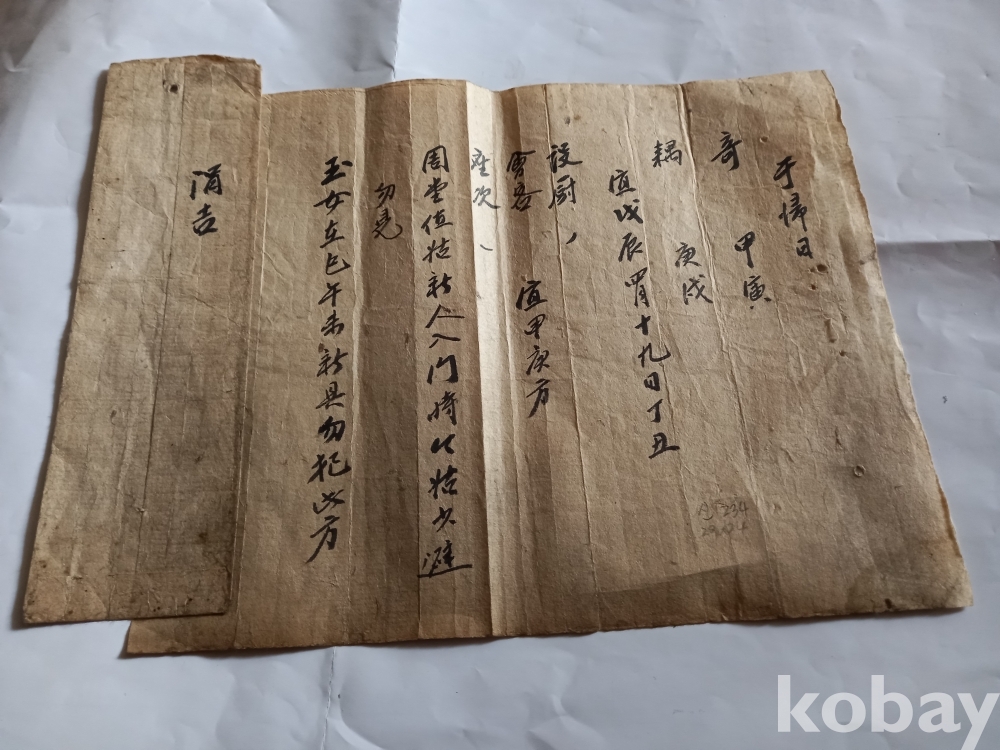 于帰日
奇 甲寅
耦 庚戌
宜戊辰四月十九日丁丑
設厨、
會客 宜甲庚方
座次、
周堂值姑新人入門時以姑少避
勿見
玉女在巳午未新具勿犯此方
涓吉
kobay